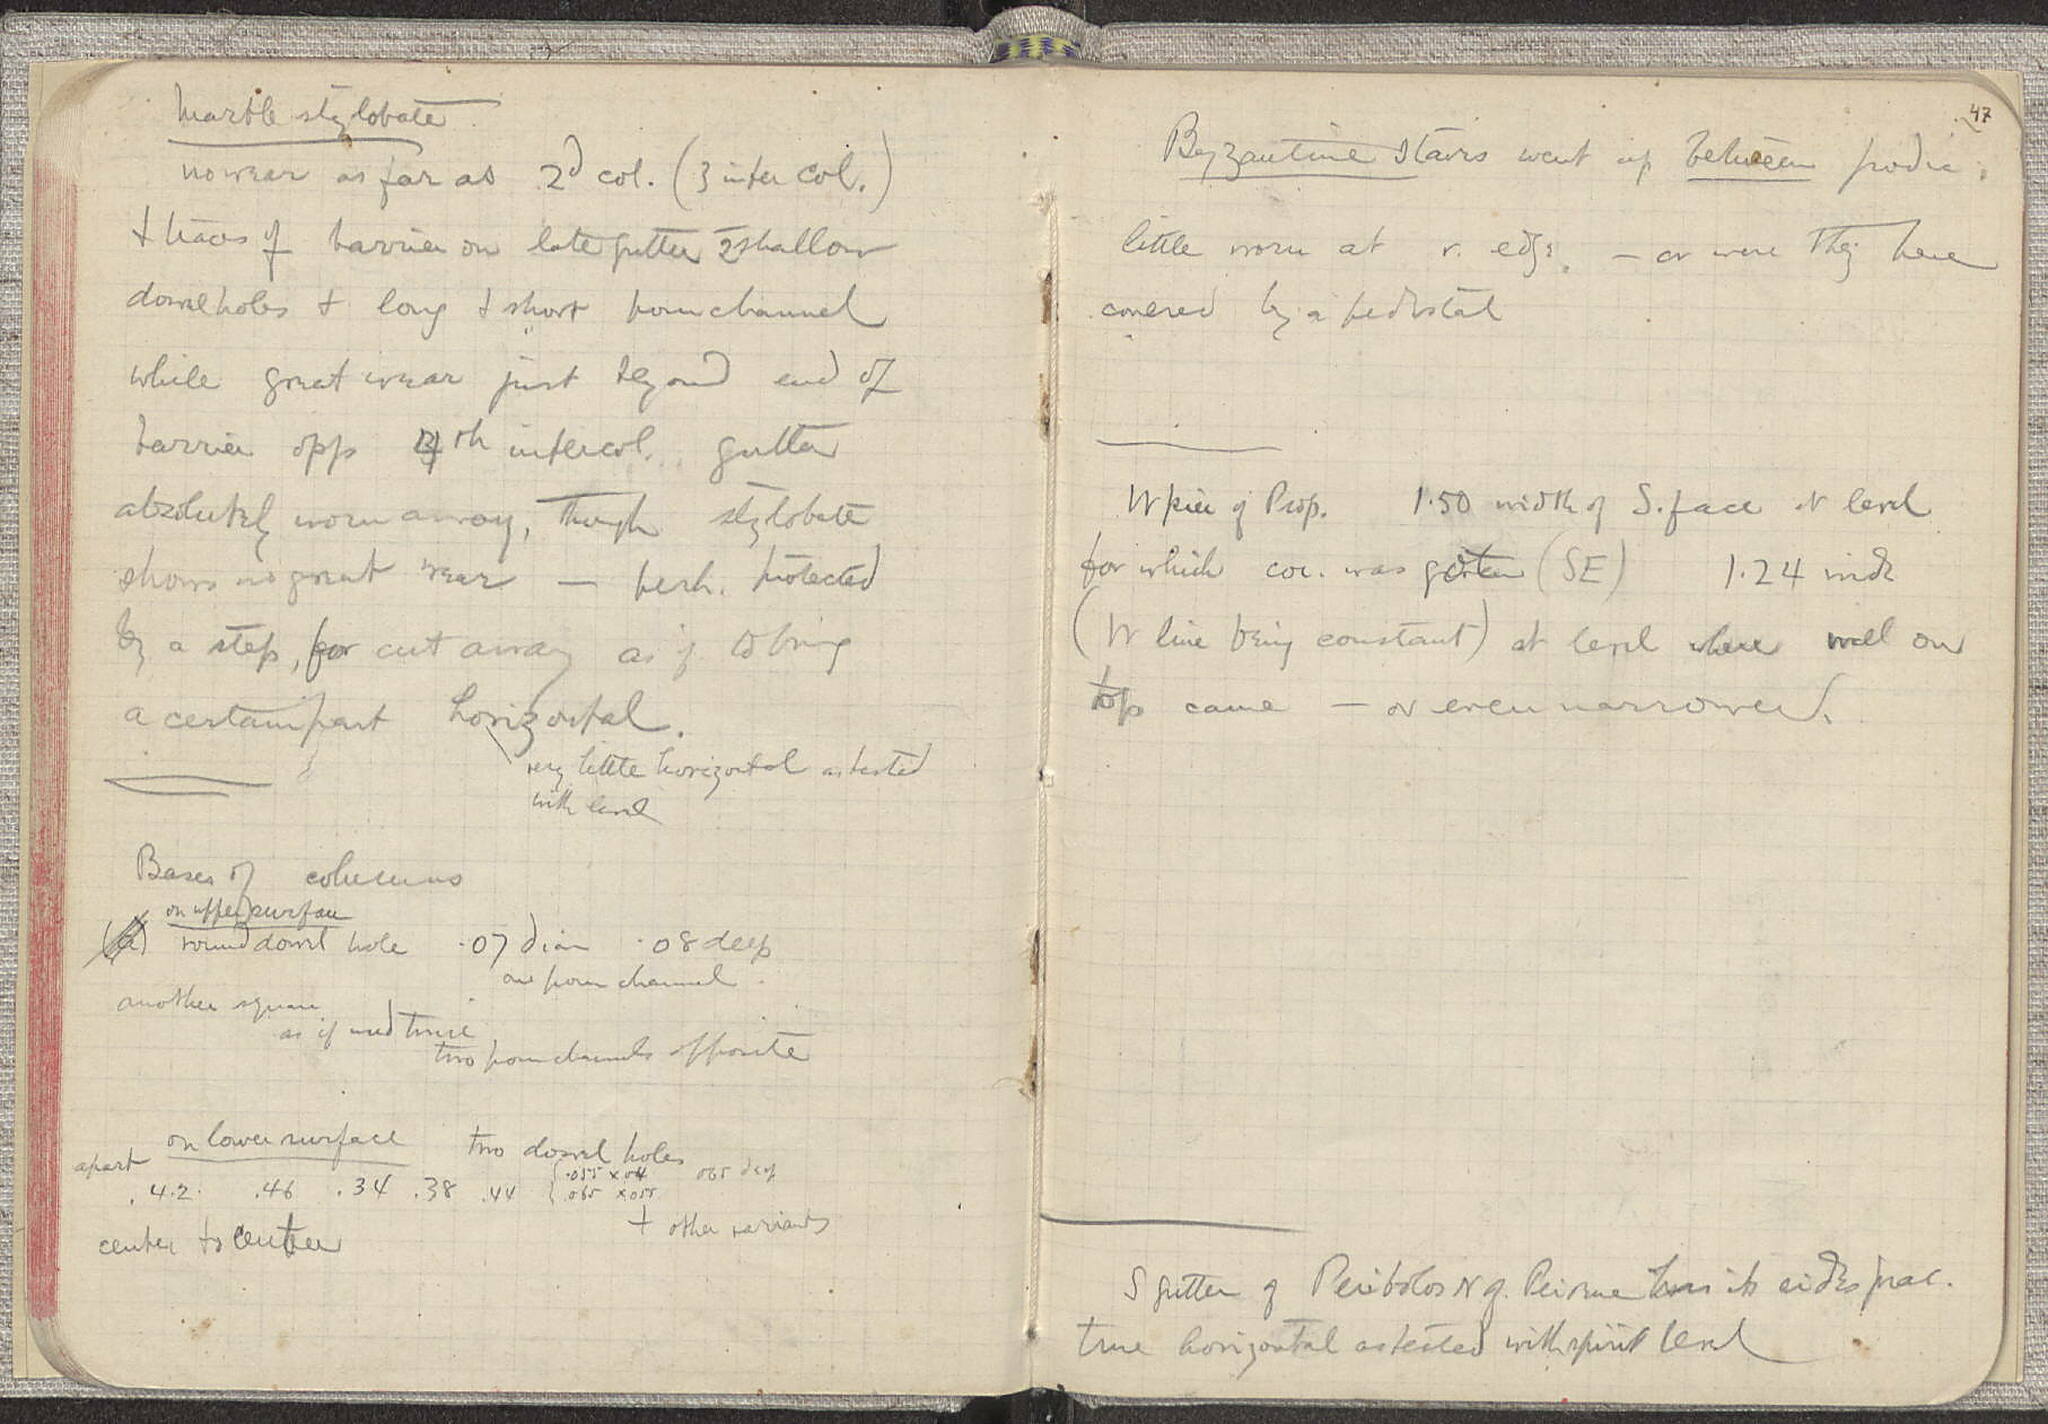 Marble stylobate
no wear as far as 2d col. (3 inter col.)
+ traces of barrier on late gutter 2 shallow
dowel holes + long + short pour channel
while great wear just beyond end of
barrier opp 4th intercol. gutter
absolutely worn away, though stylobate
shows no great wear — perh. protected
by a step, for cut away as if to bring
a certain part horizontal.
very little horizontal as tested
with level
Bases of columns
on upper surface
(a) round dowel hole .07 diam .08 deep
one pour channel
another square
as if used twice
two pour channels opposite
on lower surface two dowel holes
apart .055 x .04 .065 deep
.42 .46 .34 .38 .44 .065 x .055
+ other variants
center to center
47
Byzantine stairs went up between podia,
little worn at r. edge. — or were they here
covered by a pedestal
W pier of Prop. 1.50 width of S. face at level
for which cor. was gotten (SE) 1.24 wide
(W line being constant) at level where wall on
top came — or even narrower.
S gutter of Peribolos N of Peirene has its sides prac.
true horizontal as tested with spirit level